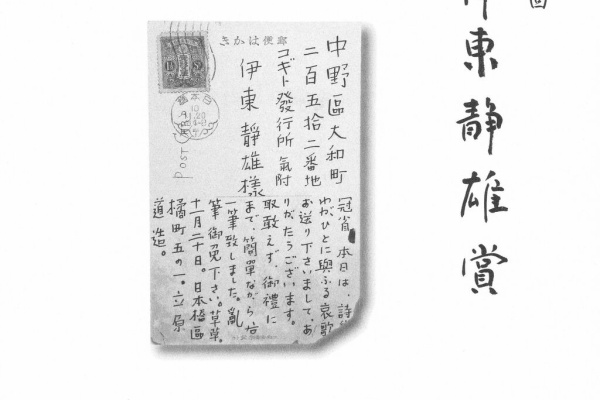 伊東靜雄賞
郵便はかき
中野區大和町
二百五拾二番地
コギト發行所 氣附
伊東靜雄樣
日本橋
POST CARD
冠省 本日は、詩集
わがひとに與ふる哀歌
お送り下さいまして、あ
りがたうございます。
取敢えず、御禮に
まで、簡單ながら右
一筆致しました。亂
筆御免下さい。草草。
十一月二十日。日本橋區
橘町五の一。立原
道造。